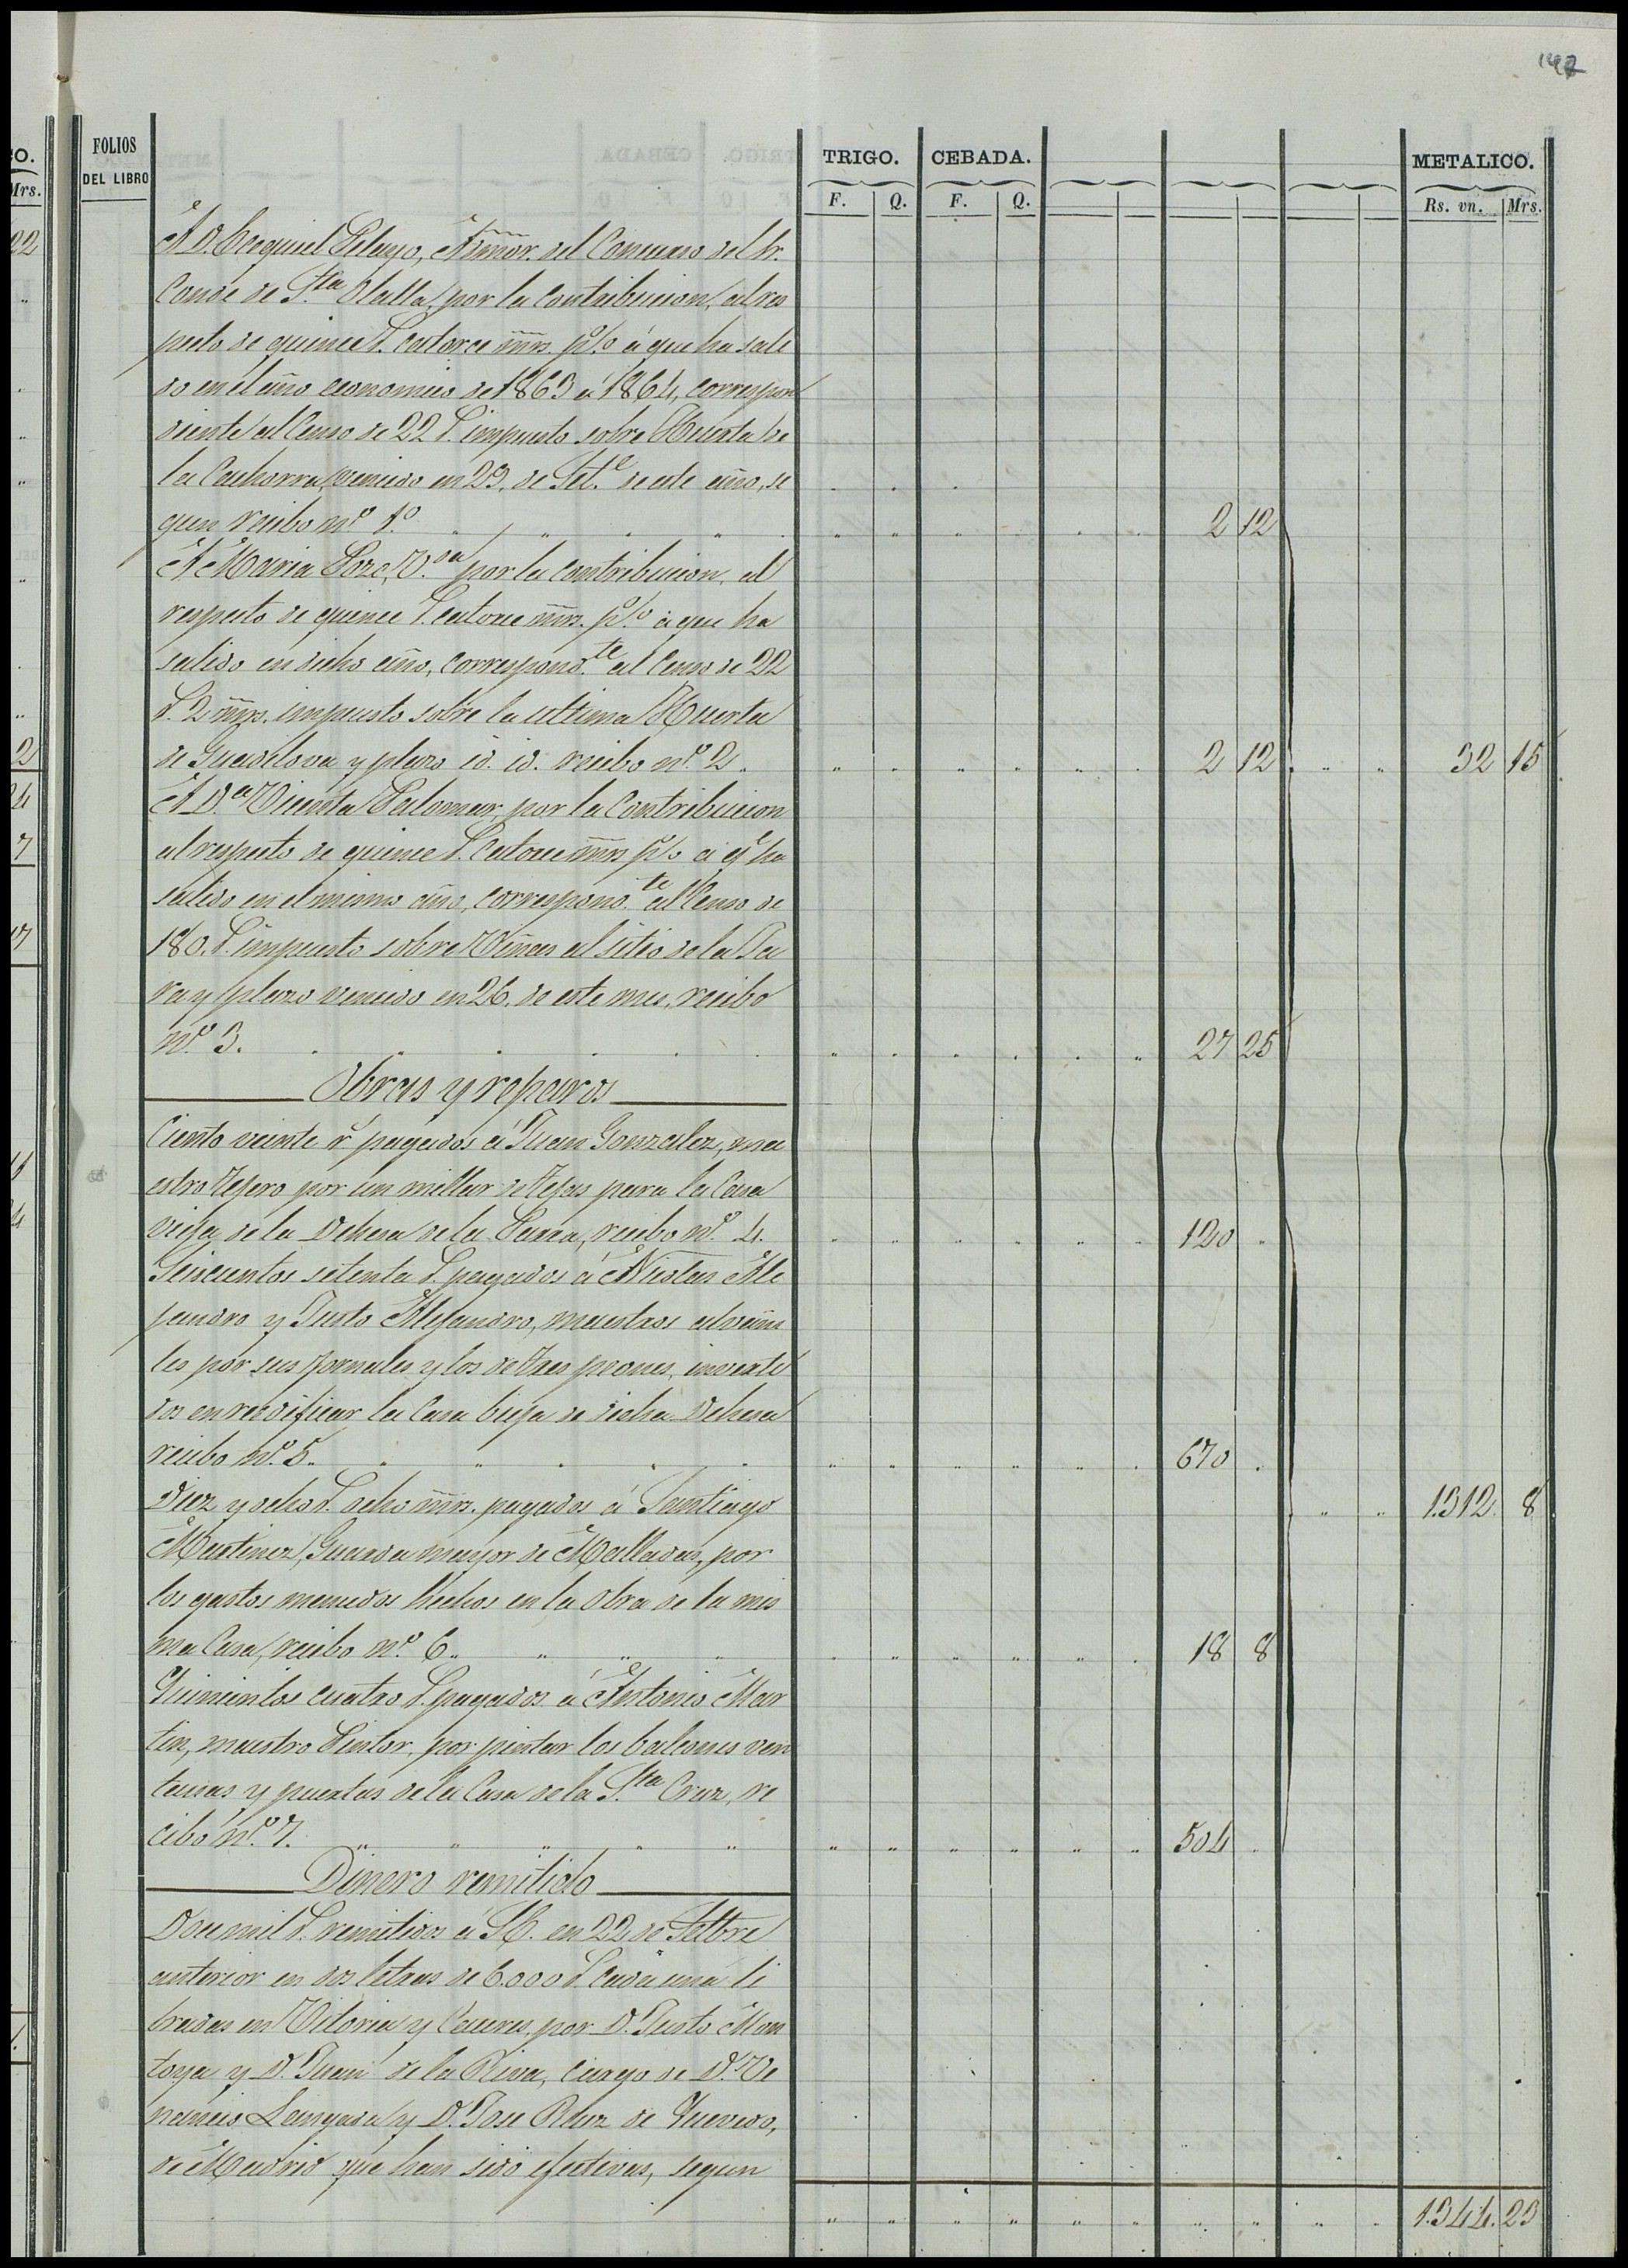 147
FOLIOS
DEL LIBRO
TRIGO. CEBADA. METALICO.
F. Q. F. Q. Rs. vn. Mrs.
A D. Ecequiel Pelayo, Admor. del Concurso del Sr.
Conde de Sta. Olalla, por la Contribucion, al res
pecto de quince r. catorce mrs. p%. á que ha sali
do en el año economico de 1863 á 1864, correspon
diente al Censo de 22 r. impuesto sobre Huerta de
la Cachorra, vencido en 29, de Set.e de este año, se
gun recibo nº. 1º " " " " " " " " 2 12
A Maria Pozo, V.da por la contribucion, al
respecto de quince r. catorce mrs. p%. á que ha
salido en dicho año, correspond.te al Censo de 22
r. 2 mrs. impuesto sobre la ultima Huerta
de Guadilova y plazo id. id. recibo nº. 2. " " " " " " 2 12 " " 32 15
A D.a Vicenta Palomar, por la Contribucion
al respecto de quince r. Catorce mrs p%. á q.e ha
salido en el mismo año, correspond.te al Censo de
180. r. impuesto sobre Viñas al sitio de la Ja
ra y plazo vencido en 26. de este mes, recibo
nº. 3. " " " " " " 27 25
Obras y reparos
Ciento veinte r. pagados á Juan Gonzalez, ma
estro Tejero por un millar de Tejas para la Casa
vieja de la Dehesa de la Parra, recibo nº. 4. " " " " " " 120 "
Seiscientos setenta r. pagados á Nicolas Ale
jandro y Justo Alejandro, maestros albañi
les por sus jornales y los de tres peones, inverti
dos en reedificar la Casa bieja de dicha Dehesa
recibo nº. 5. " " " " " " 670 "
Diez y ocho r. ocho mrs. pagados á Santiago " " 1.312. 8
Martinez, Guarda mayor de Malladas, por
los gastos menudos hechos en la obra de la mis
ma Casa, recibo nº. 6. " " " " " " 18 8
Quinientos cuatro r. pagados á Antonio Mar
tin, maestro Pintor, por pintar los balcones ven
tanas y puertas de la Casa de la Sta. Cruz, re
cibo nº. 7. " " " " " " 504 "
Dinero remitido
Doce mil r. remitidos á S.E. en 22 de Setbre
anterior en dos letras de 6.000 r. cada una li
bradas en Vitoria y Caceres por D. Justo Mon
toya y D. Juan de la Riva, cargo de D. Ve
nancio Langada y D. Jose Ruiz de Quevedo,
de Madrid que han sido efectivas, segun
" " " " " " " " " " 1.344. 23